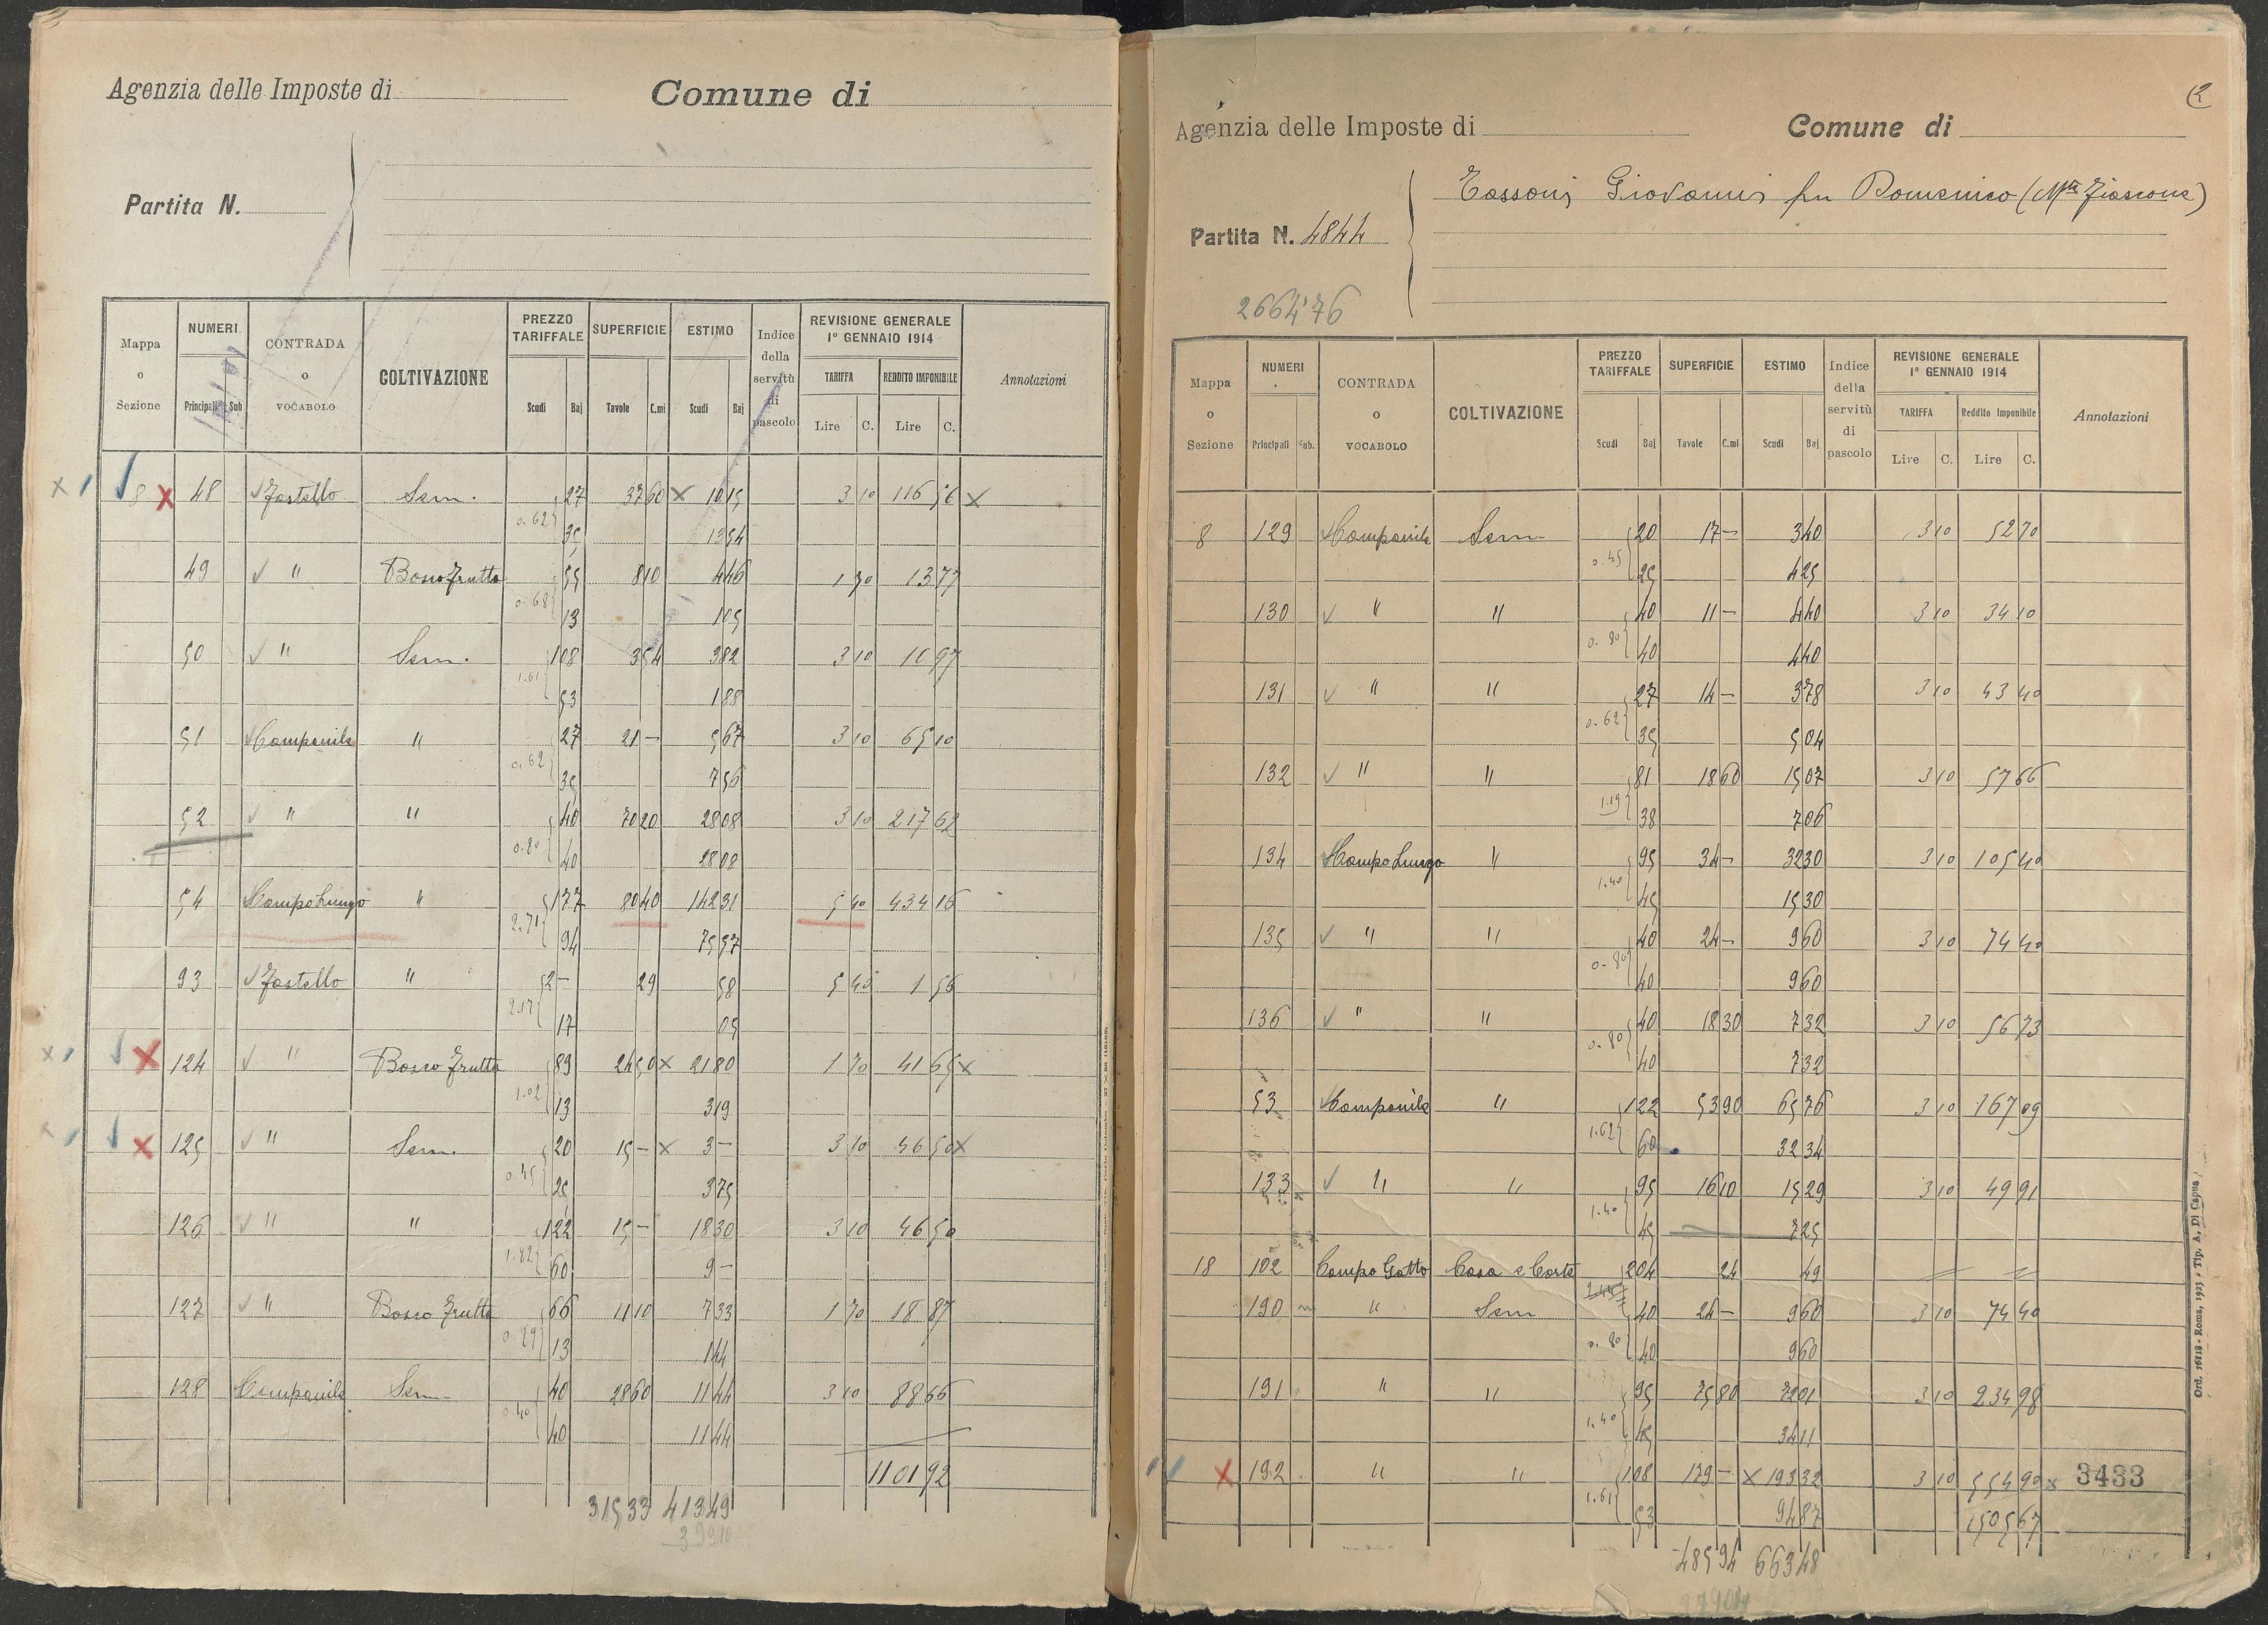 Agenzia delle Imposte di
Comune di
Partita N.
Mappa o Sezione | NUMERI Principali Sub | CONTRADA o VOCABOLO | COLTIVAZIONE | PREZZO TARIFFALE Scudi Baj | SUPERFICIE Tavole C.mi | ESTIMO Scudi Baj | Indice della servitù di pascolo | REVISIONE GENERALE 1° GENNAIO 1914 TARIFFA Lire C. REDDITO IMPONIBILE Lire C. | Annotazioni
8 x 48 Sem. 27 37 60 x 10 15 3 10 116 56 x
0.62 35 13 54
49 " Bosco frutto 55 8 10 4 46 1 70 13 77
0.68 13 1 05
50 " Sem. 108 3 54 3 82 3 10 10 97
1.61 53 1 88
51 Campanile " 27 21 — 5 67 3 10 65 10
0.62 35 7 56
52 " " 40 70 20 28 08 3 10 217 62
0.80 40 28 08
54 Campo Lungo " 177 80 40 142 31 5 40 434 16
2.71 94 75 57
93 " 2 — 29 58 5 40 1 56
2.17 17 05
x 124 " Bosco frutto 89 24 50 x 21 80 1 70 41 65 x
1.02 13 3 19
x 125 " Sem. 20 15 — x 3 — 3 10 46 50 x
0.45 25 3 75
126 " " 122 15 — 18 30 3 10 46 50
1.82 60 9 —
127 " Bosco frutto 66 11 10 7 33 1 70 18 87
0.79 13 1 44
128 Campanile Sem 40 28 60 11 44 3 10 88 66
40 11 44
1101 92
315 33 413 49
2
Agenzia delle Imposte di
Comune di
Tassoni Giovanni fu Domenico
Partita N. 4844
2664'76
Mappa o Sezione | NUMERI Principali Sub. | CONTRADA o VOCABOLO | COLTIVAZIONE | PREZZO TARIFFALE Scudi Baj | SUPERFICIE Tavole C.mi | ESTIMO Scudi Baj | Indice della servitù di pascolo | REVISIONE GENERALE 1° GENNAIO 1914 TARIFFA Lire C. Reddito Imponibile Lire C. | Annotazioni
8 129 Campanile Sem 20 17 — 3 40 3 10 52 70
0.45 25 4 25
130 " " 40 11 — 4 40 3 10 34 10
0.80 40 4 40
131 " " 27 14 — 3 78 3 10 43 40
0.62 35 5 04
132 " " 81 18 60 15 07 3 10 57 66
1.19 38 7 06
134 Campo Lungo " 95 34 — 32 30 3 10 105 40
1.40 45 15 30
135 " " 40 24 — 9 60 3 10 74 40
0.80 40 9 60
136 " " 40 18 30 7 32 3 10 56 73
0.80 40 7 32
53 Campanile " 122 53 90 65 76 3 10 167 09
60 32 34
133 " " 95 16 10 15 29 3 10 49 91
1.40 45 7 25
18 102 Campo Gatto Casa e Corte 204 24 49
190 " Sem 40 24 — 9 60 3 10 74 40
0.80 40 9 60
191 " " 95 75 80 72 01 3 10 234 98
1.40 45 34 11
x 192 " " 108 179 — x 193 32 3 10 554 90 x 3433
1.61 53 94 87
1505 67
485 94 663 48
Ord. 16118 - Roma, 1923 - Tip. A. Di Capua